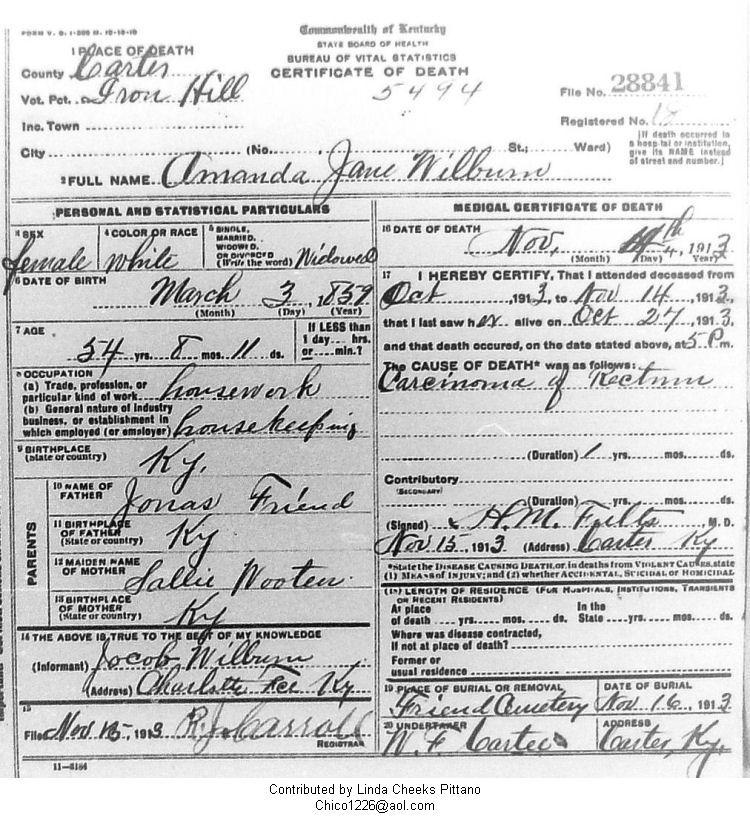 FORM V. S. 1-
Commonwealth of Kentucky
STATE BOARD OF HEALTH
BUREAU OF VITAL STATISTICS
CERTIFICATE OF DEATH
5494
1 PLACE OF DEATH
County Carter
Vot. Pct. Iron Hill
Inc. Town
City (No. St.; Ward)
File No. 28841
Registered No. 18
[If death occurred in
a hospital or institution,
give its NAME instead
of street and number.]
2 FULL NAME Amanda Jane Wilburn
PERSONAL AND STATISTICAL PARTICULARS
3 SEX
female
4 COLOR OR RACE
White
5 SINGLE,
MARRIED,
WIDOWED,
OR DIVORCED
(Write the word) Widowed
6 DATE OF BIRTH
March 3, 1859
(Month) (Day) (Year)
7 AGE
54 yrs. 8 mos. 11 ds.
If LESS than
1 day ... hrs.
or ... min.?
8 OCCUPATION
(a) Trade, profession, or
particular kind of work housework
(b) General nature of industry
business, or establishment in
which employed (or employer) housekeeping
9 BIRTHPLACE
(State or country)
Ky.
PARENTS
10 NAME OF
FATHER
Jonas Friend
11 BIRTHPLACE
OF FATHER
(State or country)
Ky
12 MAIDEN NAME
OF MOTHER
Sallie Wooten
13 BIRTHPLACE
OF MOTHER
(State or country)
Ky
14 THE ABOVE IS TRUE TO THE BEST OF MY KNOWLEDGE
(Informant) Jacob Wilburn
(Address) Charlotte Fce Ky
15
Filed Nov 15, 1913 R. J. Carroll
REGISTRAR
11-3184
MEDICAL CERTIFICATE OF DEATH
16 DATE OF DEATH
Nov. 14th, 1913
(Month) (Day) (Year)
17 I HEREBY CERTIFY, That I attended deceased from
Oct 1913, to Nov 14, 1913,
that I last saw her alive on Oct 27, 1913
and that death occured, on the date stated above, at 5 P.m.
The CAUSE OF DEATH* was as follows:
Carcinoma of Rectum
(Duration) 1 yrs. mos. ds.
Contributory
(SECONDARY)
(Duration) yrs. mos. ds.
(Signed) H. M. Fults M.D.
Nov 15, 1913 (Address) Carter Ky
*State the DISEASE CAUSING DEATH, or, in deaths from VIOLENT CAUSES, state
(1) MEANS OF INJURY; and (2) whether ACCIDENTAL, SUICIDAL or HOMICIDAL
(18) LENGTH OF RESIDENCE (FOR HOSPITALS, INSTITUTIONS, TRANSIENTS
OR RECENT RESIDENTS)
At place
of death yrs. mos. ds.
In the
State yrs. mos. ds.
Where was disease contracted,
if not at place of death?
Former or
usual residence
19 PLACE OF BURIAL OR REMOVAL
Friend Cemetery
DATE OF BURIAL
Nov. 16, 1913
20 UNDERTAKER
W. F. Carter
ADDRESS
Carter, Ky.
Contributed by Linda Cheeks Pittano
Chico1226@aol.com